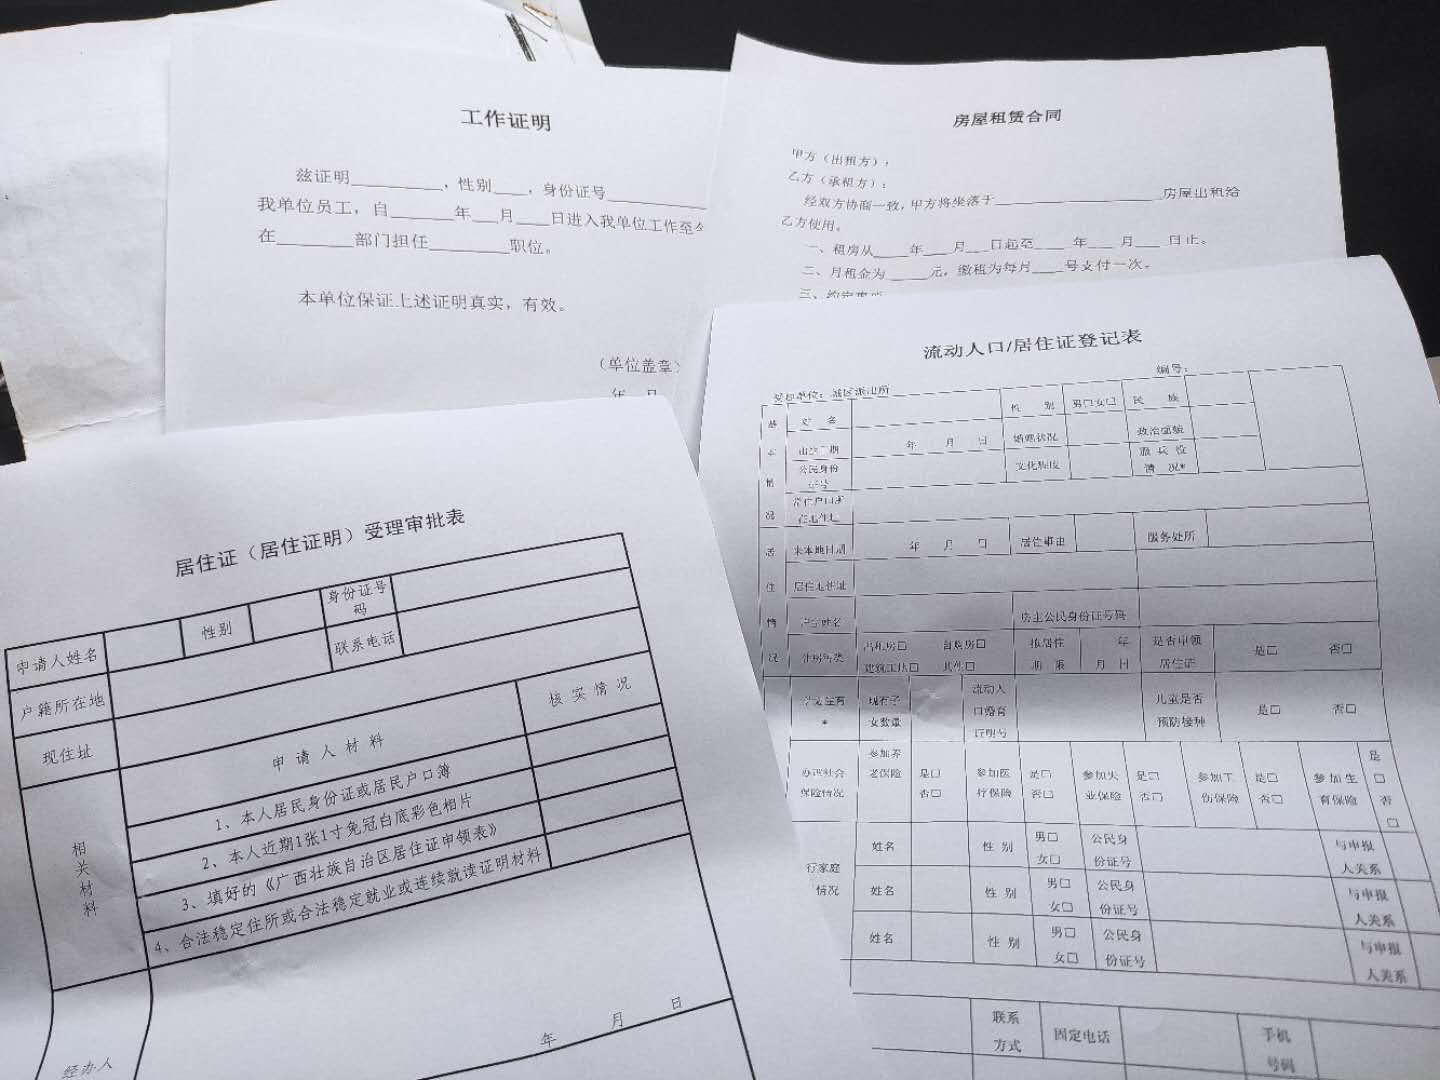 工作证明
兹证明________，性别___，身份证号
我单位员工，自______年___月___日进入我单位工作至今
在_______部门担任_______职位。
本单位保证上述证明真实，有效。
（单位盖章）
年 月
房屋租赁合同
甲方（出租方）：
乙方（承租方）：
经双方协商一致，甲方将坐落于________________房屋出租给
乙方使用。
一、租房从____年___月___日起至____年___月___日止。
二、月租金为_____元，缴租为每月____号支付一次。
三、约定
流动人口/居住证登记表
编号：
单位：城区派出所
姓 名
性 别
男□女□
民 族
年 月 日
婚姻状况
政治面貌
公民身份
证号
文化程度
服兵役
情 况*
来本地日期
年 月 日
居住事由
服务处所
居住地住址
房主公民身份证号码
住房种类
自购房□
其他□
拟居住
期 限
年
月 日
是否申领
居住证
是□ 否□
现有子
女数量
流动人
口婚育
证明号
儿童是否
预防接种
是□ 否□
办理社会
保险情况
参加养
老保险
是□
否□
参加医
疗保险
是□
否□
参加失
业保险
是□
否□
参加工
伤保险
是□
否□
参加生
育保险
是
□
否
□
行家庭
情况
姓名
性 别
男□
女□
公民身
份证号
与申报
人关系
姓名
性 别
男□
女□
公民身
份证号
与申报
人关系
姓名
性 别
男□
女□
公民身
份证号
与申报
人关系
联系
方式
固定电话
手机
号码
居住证（居住证明）受理审批表
申请人姓名
性别
身份证号
码
户籍所在地
联系电话
现住址
相
关
材
料
申请人材料
核实情况
1、本人居民身份证或居民户口簿
2、本人近期1张1寸免冠白底彩色相片
3、填好的《广西壮族自治区居住证申领表》
4、合法稳定住所或合法稳定就业或连续就读证明材料
年 月 日
经办人